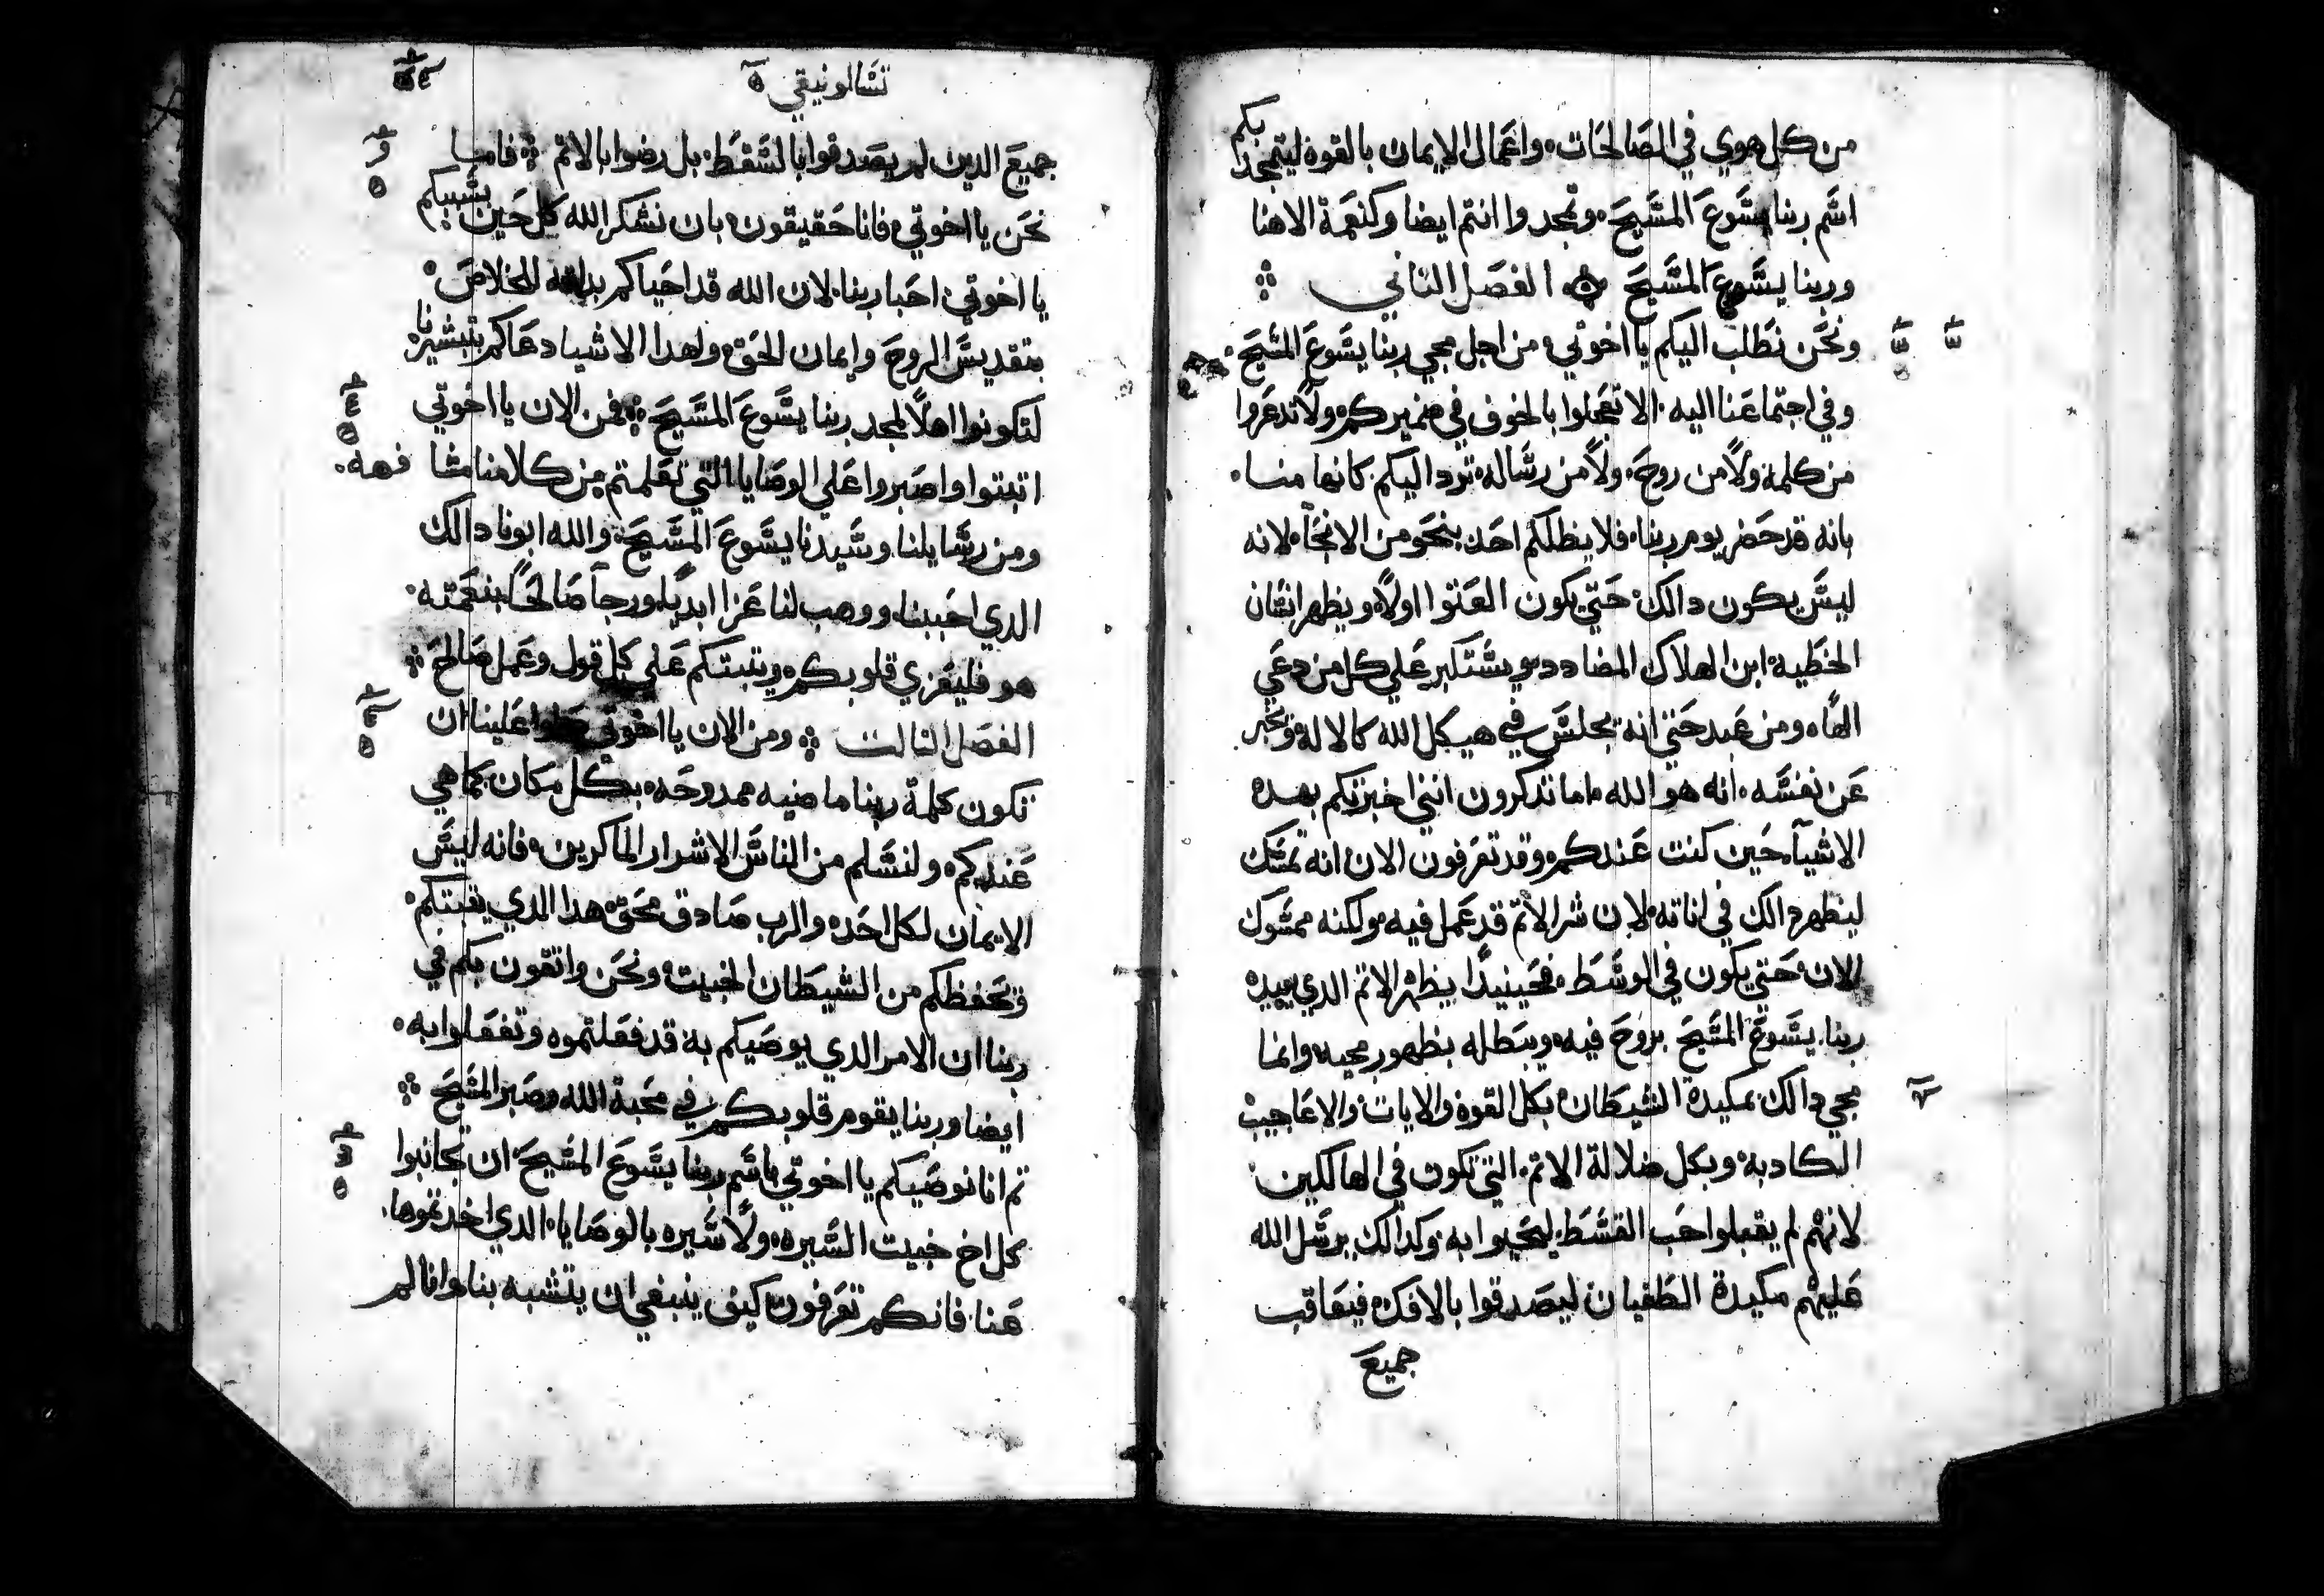 من كل هوي في الصالحات، واعمال الايمان بالقوة ليتمجد بكم
اسم ربنا يسوع المسيح، وتمجدوا انتم ايضا وكنعمة الاهنا
وربنا يسوع المسيح الفصل التاني
ونحن نطلب اليكم يا اخوتي، من اجل مجي ربنا يسوع المسيح
وفي اجتماعنا اليه، الا تعجلوا بالخوف في ضميركم ولا تدعروا
من كلمة ولا من روح، ولا من رساله ترد اليكم كانها منا
بانه قد حضر يوم ربنا، فلا يظلكم احد بنحو من الانحاء لانه
ليس يكون دالك، حتي يكون العتوا اولا، ويظهر انسان
الخطيه، ابن الهلاك المضادد ويستكبر علي كل من دعي
الها، ومن عبد حتي انه يجلس في هيكل الله كالاله، ويخبر
عن نفسه، انه هو الله، اما تدكرون انني اخبرتكم بهده
الاشيآ، حين كنت عندكم، وقد تعرفون الان انه تمسك
ليظهر دالك في اناته، لان شر الاتم قد عمل فيه، ولكنه ممسوك
الان، حتي يكون في الوسط، فحينيدا يظهر الاتم الدي يبيده
ربنا يسوع المسيح بروح فيه، ويبطله بظهور مجيه، وانما
مجي دالك بمكيدة الشيطان، بكل القوة والايات، والاعاجيب
الكادبه، وبكل ضلالة الاتم، التي تكون في الهالكين
لانهم لم يقبلوا حب القسط ليحيوا به، وكدالك يرسل الله
عليهم مكيدة الطغيان ليصدقوا بالافك، فيعاقب
جميع
تسالونيقي
جميع الدين لم يصدقوا بالقسط، بل رضوا بالاتم فاما
نحن يا اخوتي، فانا حقيقون، بان نشكر الله كل حين بسببكم
يا اخوتي، احبا ربنا، لان الله قد احياكم للخلاص
بتقديس الروح وايمان الحق، ولهدا الاشيا دعاكم بتبشيرنا
لتكونوا اهلا لمجد ربنا يسوع المسيح فمن الان يا اخوتي
اتبتوا واصبروا علي الوصايا التي تعلمتم من كلامنا
ومن رسايلنا، وسيدنا يسوع المسيح، والله ابونا دالك
الدي احببنا، ووهب لنا عزا ابديا، ورجآ صالحا بنعمته
هو فليعزي قلوبكم، ويتبتكم علي كل قول وعمل صالح
الفصل التالت ومن الان يا اخوتي صلوا علينا ان
تكون كلمة ربنا ماضيه ممدوحه، بكل مكان كما هي
عندكم، ولنسلم من الناس الاشرار الماكرين، فانه ليس
الايمان لكل احد، والرب صادق محق، هدا الدي يتبتكم
ويحفظكم من الشيطان الخبيت، ونحن واتقون بكم في
ربنا ان الامر الدي يوصيكم به قد فعلتموه وتفعلوا به
ايضا وربنا يقوم قلوبكم في محبة الله وصبر المسيح
تم انا نوصيكم يا اخوتي باسم ربنا يسوع المسيح، ان تجانبوا
كل اخ خبيت السيره، ولا سيره بالوصايا، الدي اخدتموها
عنا، فانكم تعرفون كيف ينبغي ان يتشبه بنا، وانا لم